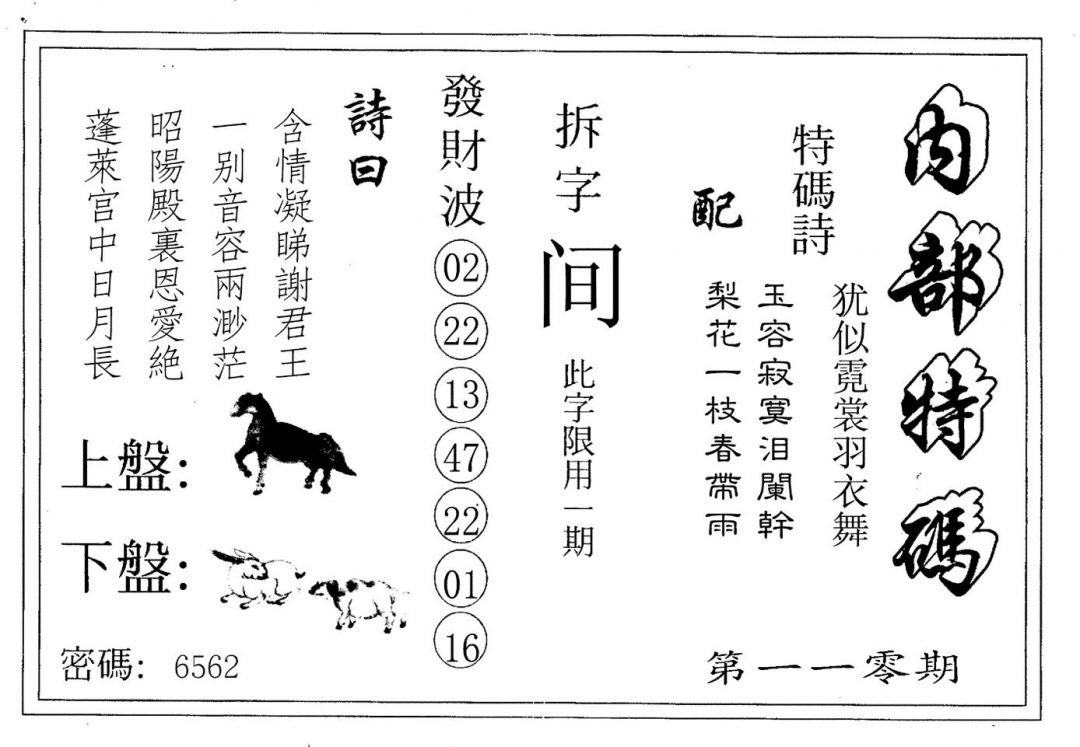 内部特碼
第一一零期
特碼詩
犹似霓裳羽衣舞
配
玉容寂寞泪闌幹
梨花一枝春帶雨
拆字
间
此字限用一期
發財波
02
22
13
47
22
01
16
詩曰
含情凝睇謝君王
一别音容兩渺茫
昭陽殿裏恩愛絶
蓬萊宫中日月長
上盤：
下盤：
密碼： 6562